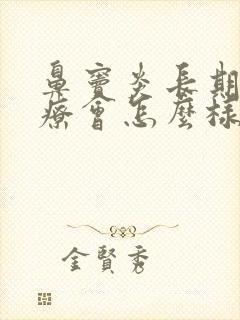 鼻竇炎長期
療會怎麼樣
金賢秀